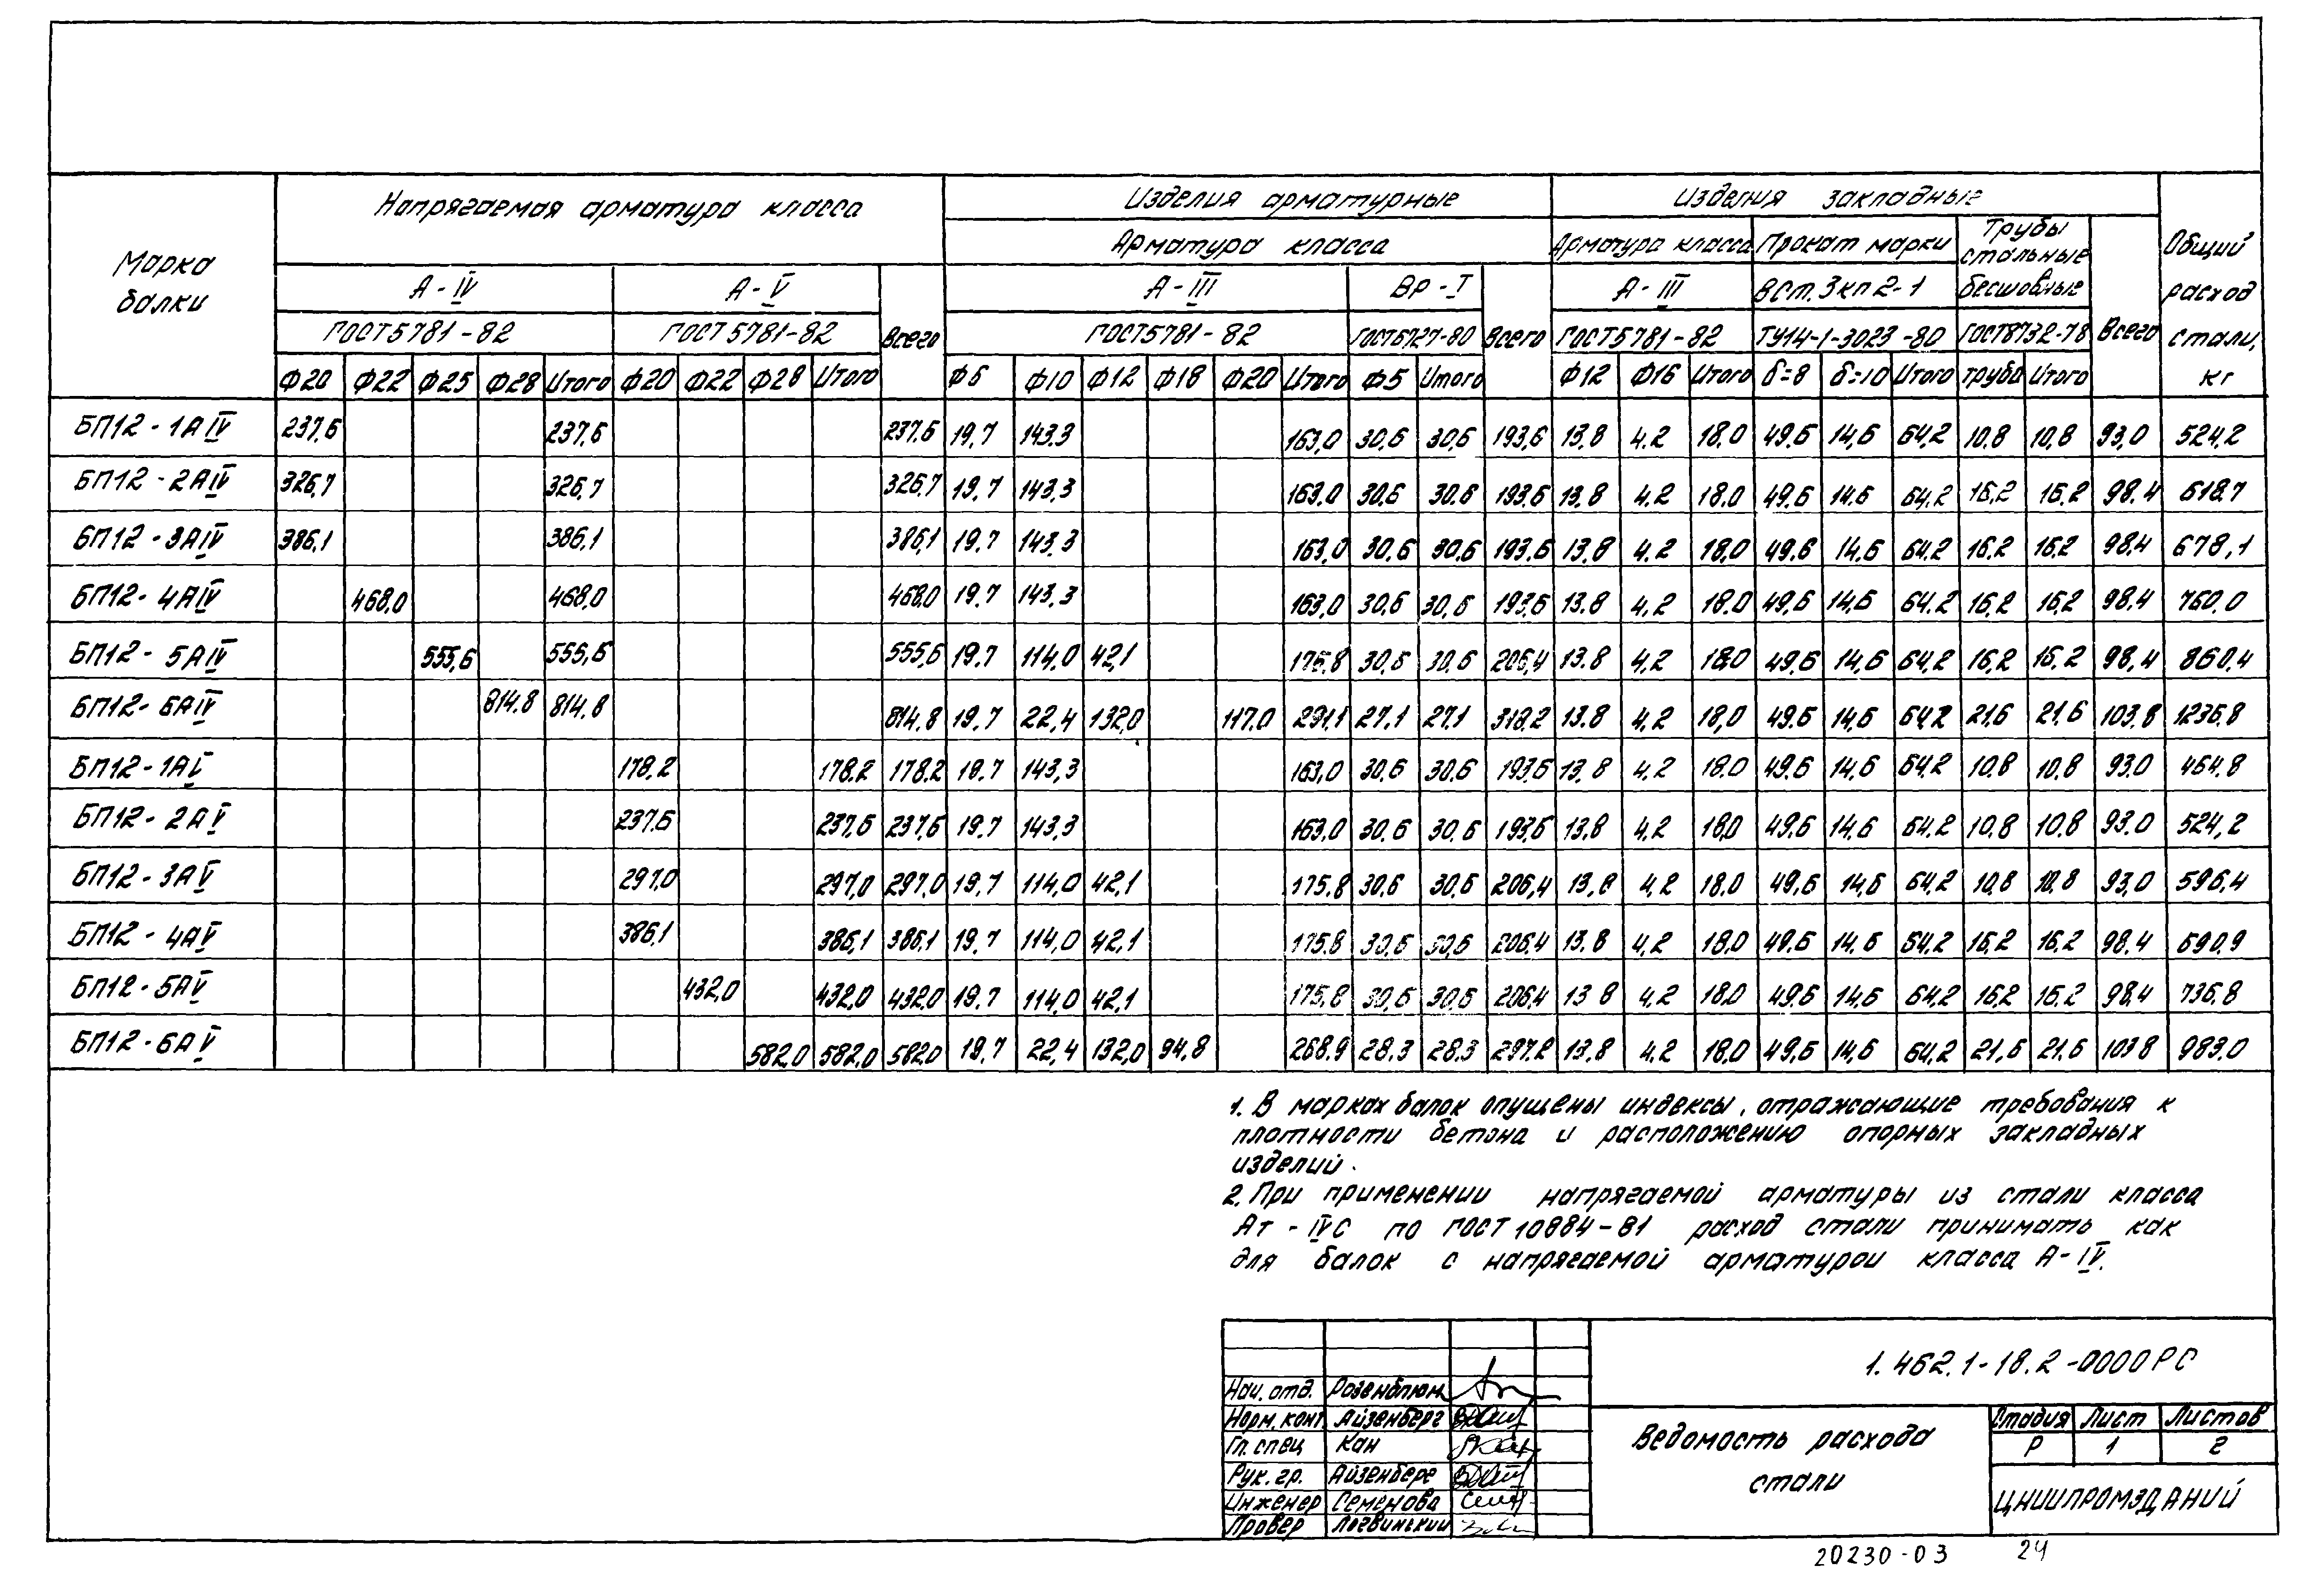 Марка балки | Напрягаемая арматура класса | Изделия арматурные | Изделия закладные | Общий расход стали, кг
Арматура класса | Арматура класса | Прокат марки | Трубы стальные бесшовные | Всего
А-IV | А-V | Всего | А-III | Вр-I | Всего | А-III | ВСт.3кп2-1
ГОСТ5781-82 | ГОСТ5781-82 | ГОСТ5781-82 | ГОСТ6727-80 | ГОСТ5781-82 | ТУ14-1-3023-80 | ГОСТ8732-78
Ф20 | Ф22 | Ф25 | Ф28 | Итого | Ф20 | Ф22 | Ф28 | Итого | Ф6 | Ф10 | Ф12 | Ф18 | Ф20 | Итого | Ф5 | Итого | Ф12 | Ф16 | Итого | δ=8 | δ=10 | Итого | труба | Итого
БП12-1АIV | 237,6 | 237,6 | 237,6 | 19,7 | 143,3 | 163,0 | 30,6 | 30,6 | 193,6 | 13,8 | 4,2 | 18,0 | 49,6 | 14,6 | 64,2 | 10,8 | 10,8 | 93,0 | 524,2
БП12-2АIV | 326,7 | 326,7 | 326,7 | 19,7 | 143,3 | 163,0 | 30,6 | 30,6 | 193,6 | 13,8 | 4,2 | 18,0 | 49,6 | 14,6 | 64,2 | 16,2 | 16,2 | 98,4 | 618,7
БП12-3АIV | 386,1 | 386,1 | 386,1 | 19,7 | 143,3 | 163,0 | 30,6 | 30,6 | 193,6 | 13,8 | 4,2 | 18,0 | 49,6 | 14,6 | 64,2 | 16,2 | 16,2 | 98,4 | 678,1
БП12-4АIV | 468,0 | 468,0 | 468,0 | 19,7 | 143,3 | 163,0 | 30,6 | 30,6 | 193,6 | 13,8 | 4,2 | 18,0 | 49,6 | 14,6 | 64,2 | 16,2 | 16,2 | 98,4 | 760,0
БП12-5АIV | 555,6 | 555,6 | 555,6 | 19,7 | 114,0 | 42,1 | 175,8 | 30,6 | 30,6 | 206,4 | 13,8 | 4,2 | 18,0 | 49,6 | 14,6 | 64,2 | 16,2 | 16,2 | 98,4 | 860,4
БП12-6АIV | 814,8 | 814,8 | 814,8 | 19,7 | 22,4 | 132,0 | 117,0 | 291,1 | 27,1 | 27,1 | 318,2 | 13,8 | 4,2 | 18,0 | 49,6 | 14,6 | 64,2 | 21,6 | 21,6 | 103,8 | 1236,8
БП12-1АV | 178,2 | 178,2 | 178,2 | 19,7 | 143,3 | 163,0 | 30,6 | 30,6 | 193,6 | 13,8 | 4,2 | 18,0 | 49,6 | 14,6 | 64,2 | 10,8 | 10,8 | 93,0 | 464,8
БП12-2АV | 237,6 | 237,6 | 237,6 | 19,7 | 143,3 | 163,0 | 30,6 | 30,6 | 193,6 | 13,8 | 4,2 | 18,0 | 49,6 | 14,6 | 64,2 | 10,8 | 10,8 | 93,0 | 524,2
БП12-3АV | 297,0 | 297,0 | 297,0 | 19,7 | 114,0 | 42,1 | 175,8 | 30,6 | 30,6 | 206,4 | 13,8 | 4,2 | 18,0 | 49,6 | 14,6 | 64,2 | 10,8 | 10,8 | 93,0 | 596,4
БП12-4АV | 386,1 | 386,1 | 386,1 | 19,7 | 114,0 | 42,1 | 175,8 | 30,6 | 30,6 | 206,4 | 13,8 | 4,2 | 18,0 | 49,6 | 14,6 | 64,2 | 16,2 | 16,2 | 98,4 | 690,9
БП12-5АV | 432,0 | 432,0 | 432,0 | 19,7 | 114,0 | 42,1 | 175,8 | 30,6 | 30,6 | 206,4 | 13,8 | 4,2 | 18,0 | 49,6 | 14,6 | 64,2 | 16,2 | 16,2 | 98,4 | 736,8
БП12-6АV | 582,0 | 582,0 | 582,0 | 19,7 | 22,4 | 132,0 | 94,8 | 268,9 | 28,3 | 28,3 | 297,2 | 13,8 | 4,2 | 18,0 | 49,6 | 14,6 | 64,2 | 21,6 | 21,6 | 103,8 | 983,0
1. В марках балок опущены индексы, отражающие требования к
плотности бетона и расположению опорных закладных
изделий.
2. При применении напрягаемой арматуры из стали класса
Ат-IVС по ГОСТ 10884-81 расход стали принимать как
для балок с напрягаемой арматурой класса А-IV.
1.462.1-18.2-0000РС
Нач. отд. Розенблюм
Норм. конт. Айзенберг
Гл. спец Кан
Рук. гр. Айзенберг
Инженер Семенова
Провер Логвинский
Ведомость расхода
стали
Стадия | Лист | Листов
Р | 1 | 2
ЦНИИПРОМЗДАНИЙ
20230-03 24